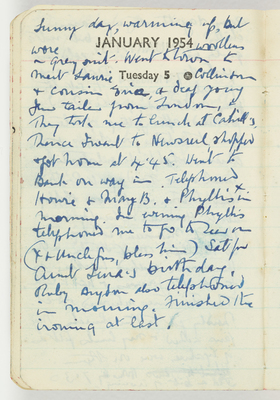 Sunny day, warming up, but
wore woollens
JANUARY 1954
a Grey suit. Went to town to
Tuesday 5
meet Laurie Collinson
& cousin & deaf young
Jew tailor from London, &
They took me to lunch at Cahill's
Thence I went to Newsreel, shopped
& got home at 4.45. Went to
Bank on way in. Telephoned
Howie & Mary B. & Phyllis in
morning. In evening Phyllis
telephoned me to go to Zee on
(X & Uncle Gus, bless him) Sat for
Aunt Lena's birthday.
Ruby also telephoned
in morning. Finished the
ironing at last!